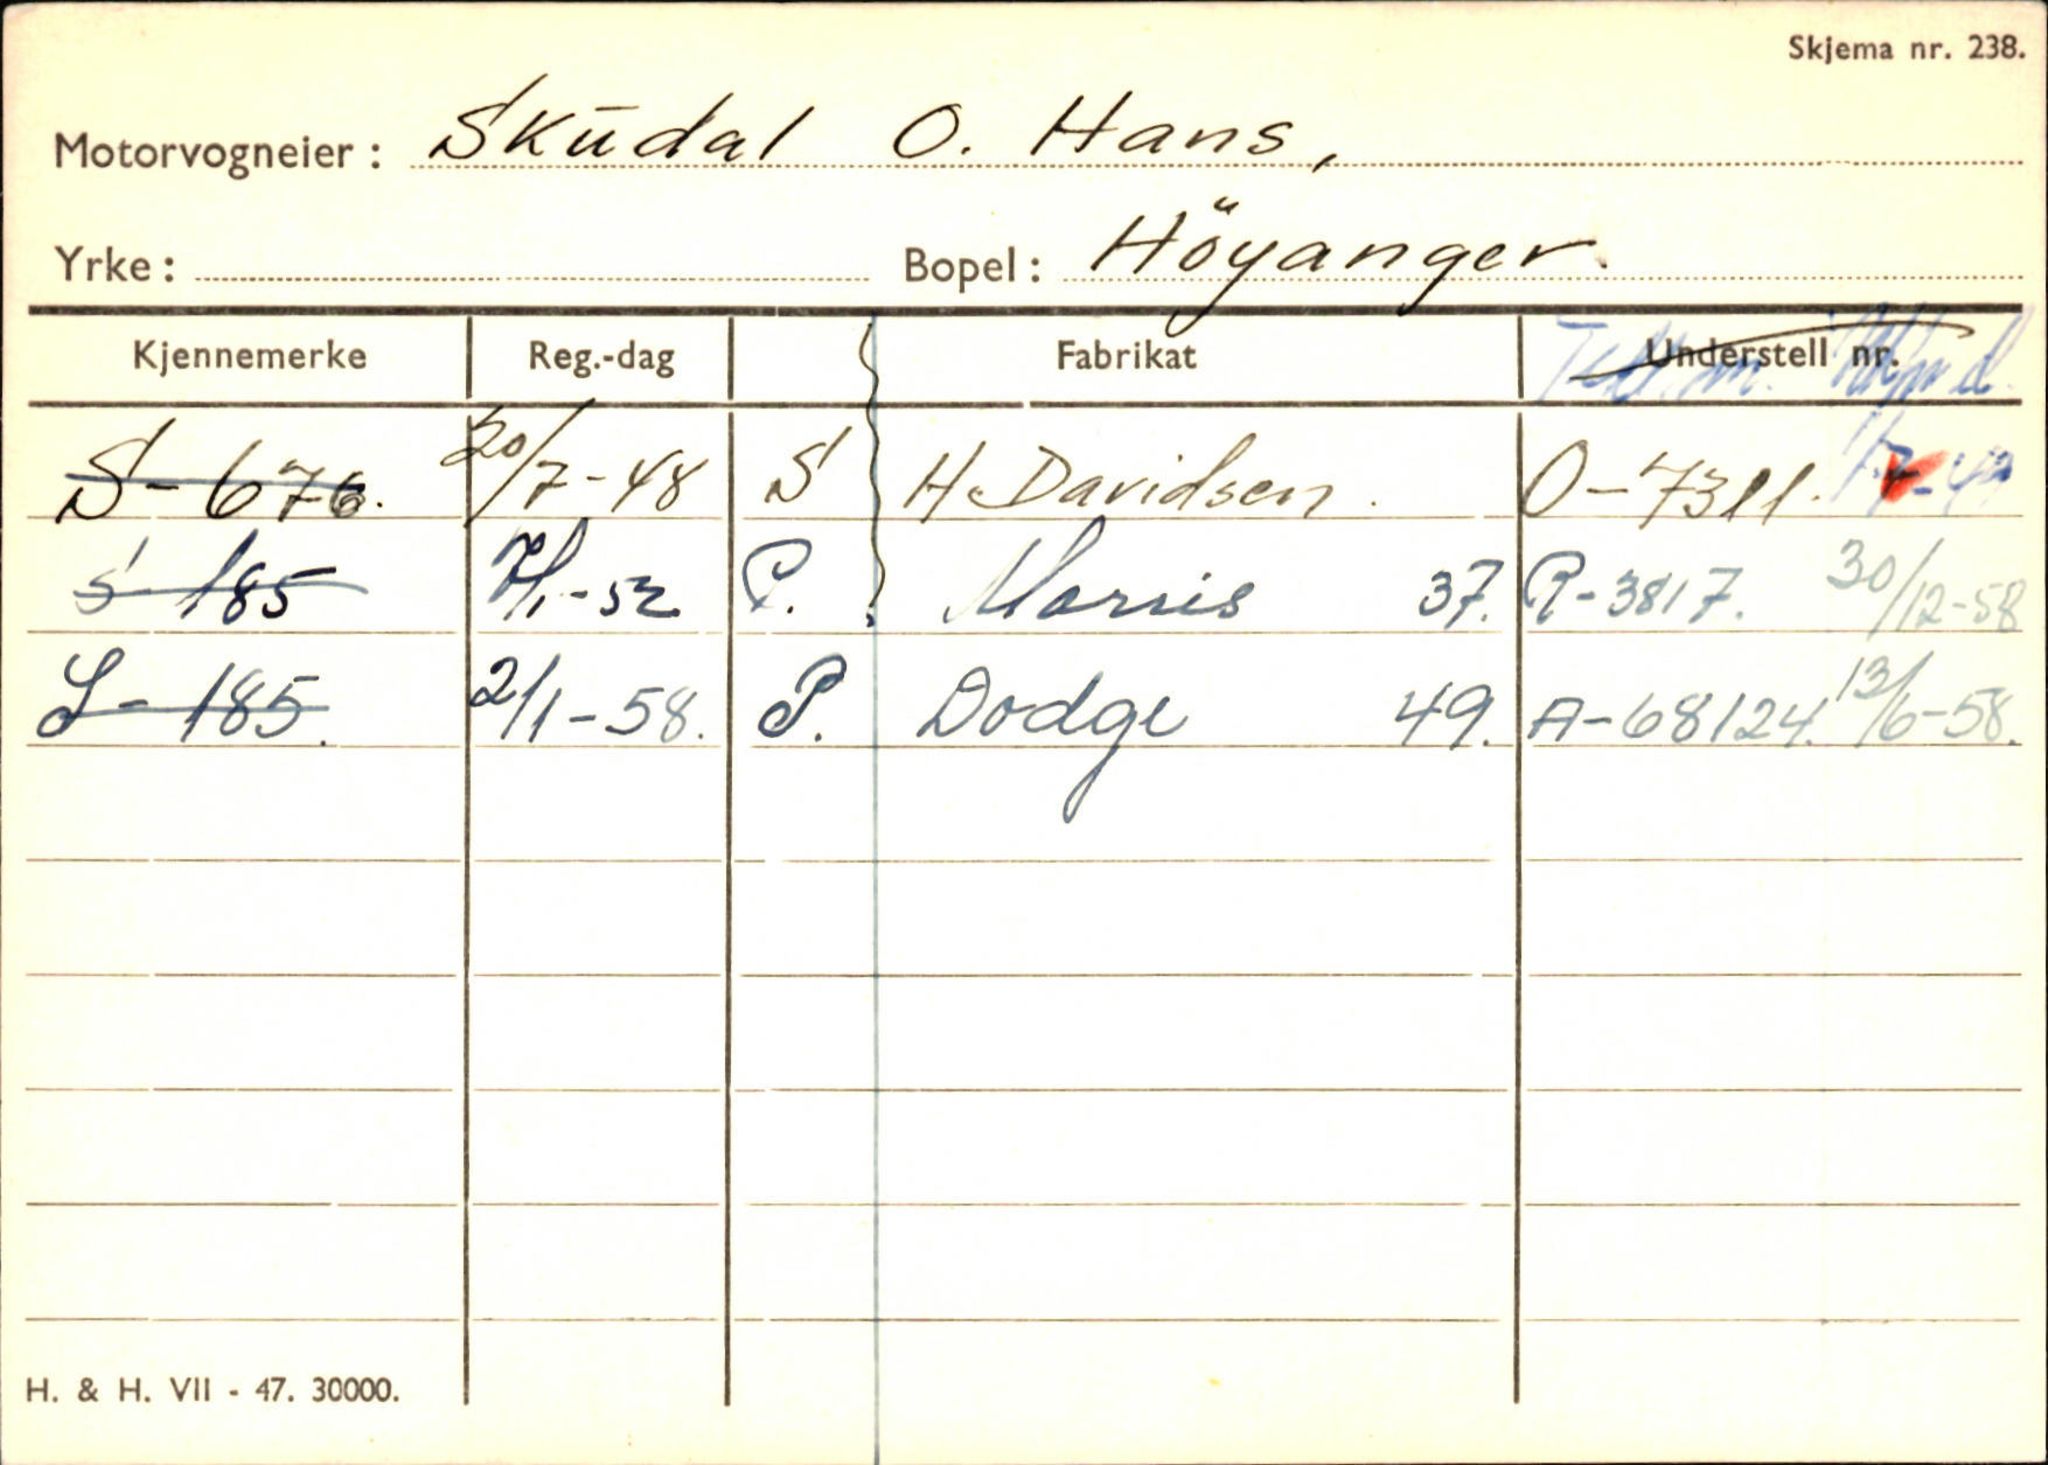 Skjema nr. 238.
Motorvogneier: Skūdal O. Hans,
Yrke: Bopel: Höyanger.
Kjennemerke Reg.-dag Fabrikat Understell nr.
S-676. 20/7-48 S H. Davidsen. O-7311.
S-185 P. Morris 37. R-3817. 30/12-58
S-185. 2/1-58. P. Dodge 49. A-68124. 13/6-58.
H. & H. VII - 47. 30000.